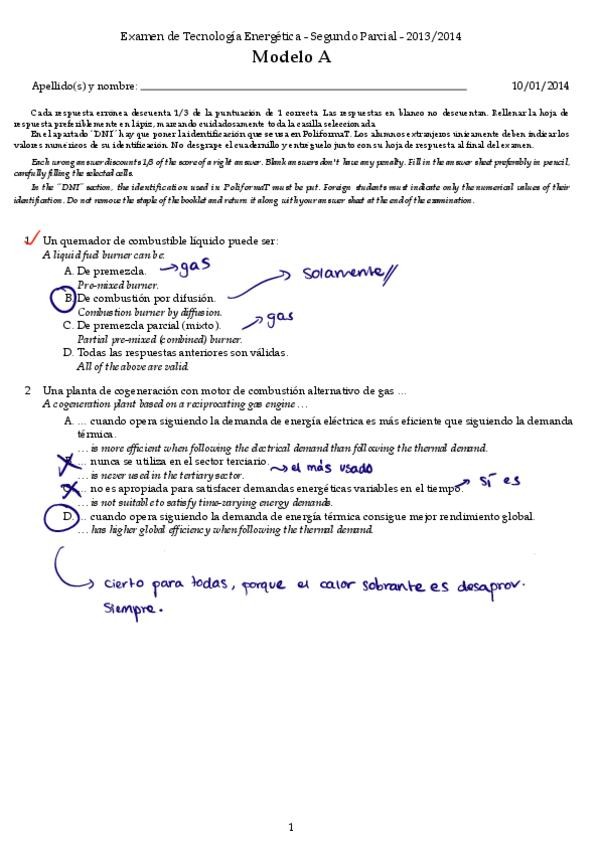 Examen de Tecnología Energética - Segundo Parcial - 2013/2014
Modelo A
Apellido(s) y nombre: 10/01/2014
Cada respuesta errónea descuenta 1/3 de la puntuación de 1 correcta. Las respuestas en blanco no descuentan. Rellenar la hoja de
respuesta preferiblemente en lápiz, marcando cuidadosamente toda la casilla seleccionada.
En el apartado "DNI" hay que poner la identificación que se usa en PoliformaT. Los alumnos extranjeros únicamente deben indicar los
valores numéricos de su identificación. No desgrape el cuadernillo y entréguelo junto con su hoja de respuesta al final del examen.
Each wrong answer discounts 1/3 of the score of a right answer. Blank answers don't have any penalty. Fill in the answer sheet preferably in pencil,
carefully filling the selected cells.
In the "DNI" section, the identification used in PoliformaT must be put. Foreign students must indicate only the numerical values of their
identification. Do not remove the staple of the booklet and return it along with your answer sheet at the end of the examination.
1 Un quemador de combustible líquido puede ser:
A liquid fuel burner can be:
A. De premezcla. → gas
Pre-mixed burner. → solamente //
B. De combustión por difusión.
Combustion burner by diffusion.
C. De premezcla parcial (mixto). → gas
Partial pre-mixed (combined) burner.
D. Todas las respuestas anteriores son válidas.
All of the above are valid.
2 Una planta de cogeneración con motor de combustión alternativo de gas ...
A cogeneration plant based on a reciprocating gas engine ...
A. ... cuando opera siguiendo la demanda de energía eléctrica es más eficiente que siguiendo la demanda
térmica.
... is more efficient when following the electrical demand than following the thermal demand.
... nunca se utiliza en el sector terciario. → el más usado
... is never used in the tertiary sector.
... no es apropiada para satisfacer demandas energéticas variables en el tiempo. → sí es
... is not suitable to satisfy time-varying energy demands.
D. ... cuando opera siguiendo la demanda de energía térmica consigue mejor rendimiento global.
... has higher global efficiency when following the thermal demand.
→ cierto para todas, porque el calor sobrante es desaprov.
siempre.
1